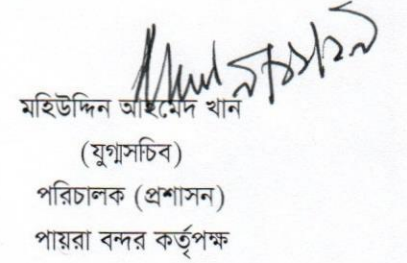 মহিউদ্দিন আহমেদ খান
(যুগ্মসচিব)
পরিচালক (প্রশাসন)
পায়রা বন্দর কর্তৃপক্ষ